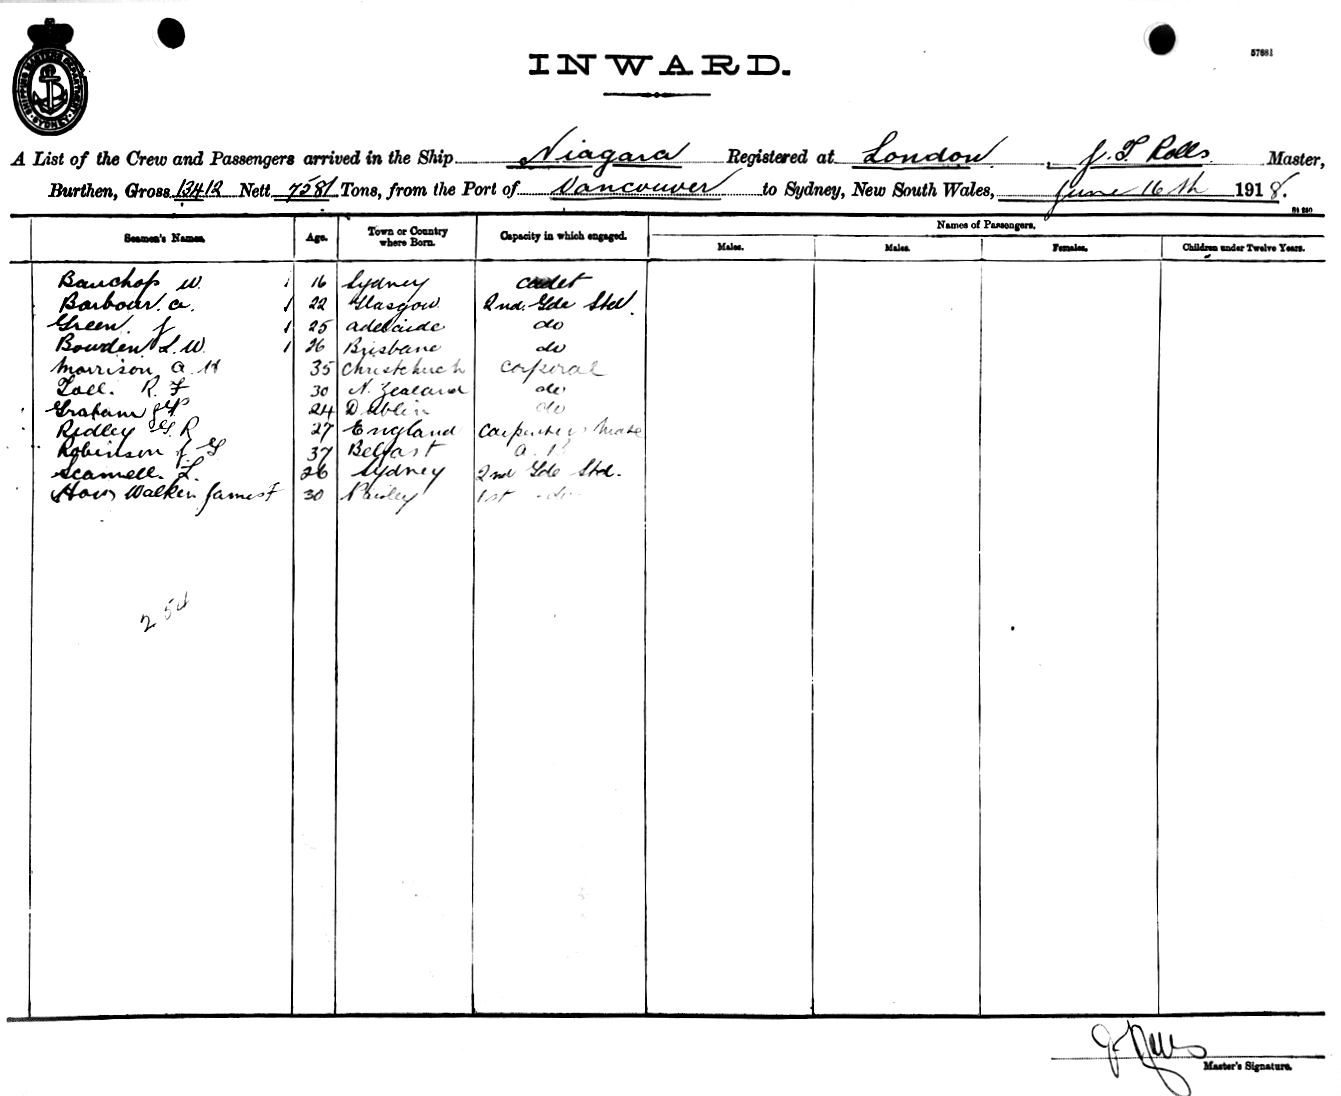 SHIPPING MASTER'S DEPARTMENT SYDNEY
57681
INWARD.
A List of the Crew and Passengers arrived in the Ship Niagara Registered at London, J. T Rolls Master,
Burthen, Gross 13412 Nett 7581 Tons, from the Port of Vancouver to Sydney, New South Wales, June 16th 1918.
Seamen's Names. Age. Town or Country where Born. Capacity in which engaged. Names of Passengers.
Males. Males. Females. Children under Twelve Years.
Bauchop W. 1 16 Sydney cadet
Barbour. a. 1 22 Glasgow. 2nd. Gde Std.
Green. J 1 25 adelaide do
Bowden L. W. 1 26 Brisbane do
Morrison a H 35 Christchurch corporal
Toll. R. F 30 N. Zealand do
Graham 24 Dublin do
Ridley G. R 27 England Carpenters Mate
Robinson J. G 37 Belfast a.
Scamell. L. 26 Sydney 2nd Gde Std.
Walker James F 30 Paisley 1st do
254
Master's Signature.